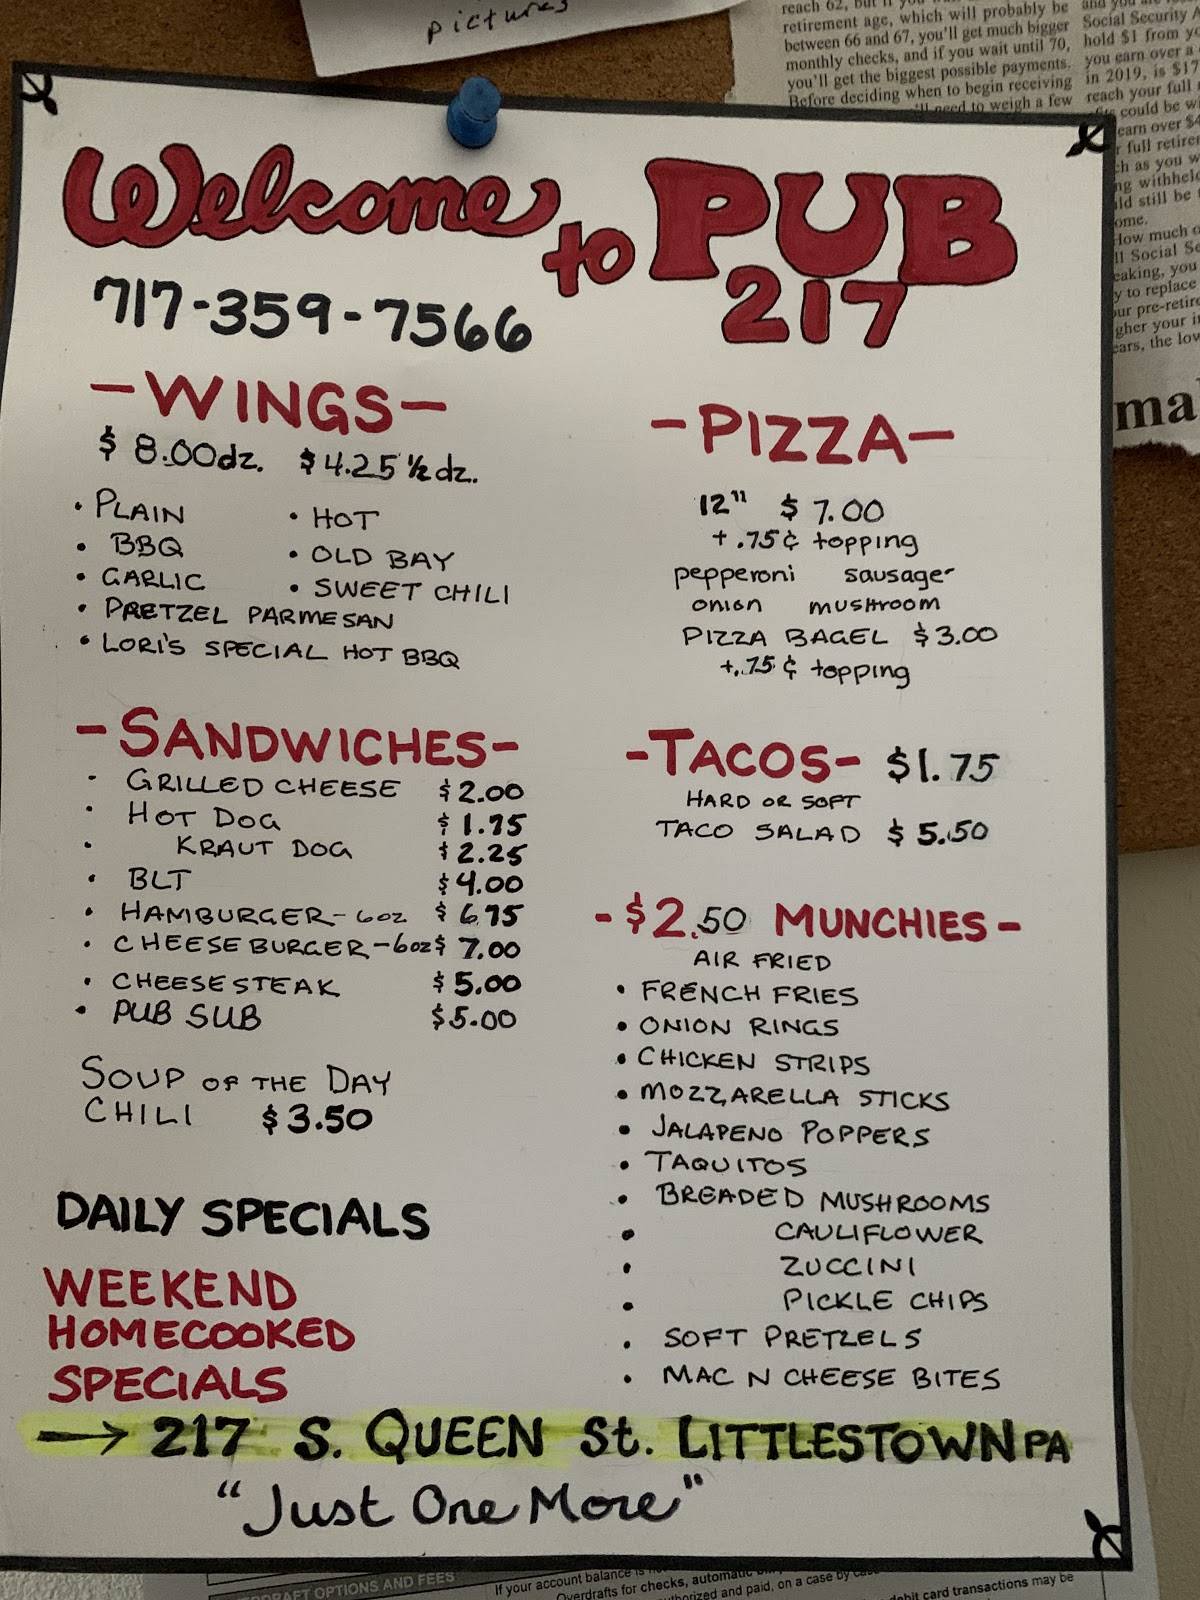 pictures
reach 62, but if you
retirement age, which will probably be
between 66 and 67, you'll get much bigger
monthly checks, and if you wait until 70,
you'll get the biggest possible payments.
Before deciding when to begin receiving
need to weigh a few
Social Security
hold $1 from
you earn over a
in 2019, is $17
reach your full
could be
earn over $4
full retire
as you
withheld
still be
How much
Social
to replace
pre-retire
your
the low
ma
Welcome to PUB
217
717-359-7566
-WINGS-
$8.00dz. $4.25 ½dz.
• PLAIN • HOT
• BBQ • OLD BAY
• GARLIC • SWEET CHILI
• PRETZEL PARMESAN
• LORI'S SPECIAL HOT BBQ
-PIZZA-
12" $7.00
+.75¢ topping
pepperoni sausage
onion mushroom
PIZZA BAGEL $3.00
+.75¢ topping
-SANDWICHES-
• GRILLED CHEESE $2.00
• HOT DOG $1.75
• KRAUT DOG $2.25
• BLT $4.00
• HAMBURGER-6oz $6.75
• CHEESEBURGER-6oz $7.00
• CHEESESTEAK $5.00
• PUB SUB $5.00
SOUP OF THE DAY
CHILI $3.50
-TACOS- $1.75
HARD OR SOFT
TACO SALAD $5.50
-$2.50 MUNCHIES-
AIR FRIED
• FRENCH FRIES
• ONION RINGS
• CHICKEN STRIPS
• MOZZARELLA STICKS
• JALAPENO POPPERS
• TAQUITOS
• BREADED MUSHROOMS
• CAULIFLOWER
• ZUCCINI
• PICKLE CHIPS
• SOFT PRETZELS
• MAC N CHEESE BITES
DAILY SPECIALS
WEEKEND
HOMECOOKED
SPECIALS
→ 217 S. QUEEN St. LITTLESTOWN PA
"Just One More"
OPTIONS AND FEES
If your account balance is
Overdrafts for checks, automatic
and paid, on a case by
card transactions may be